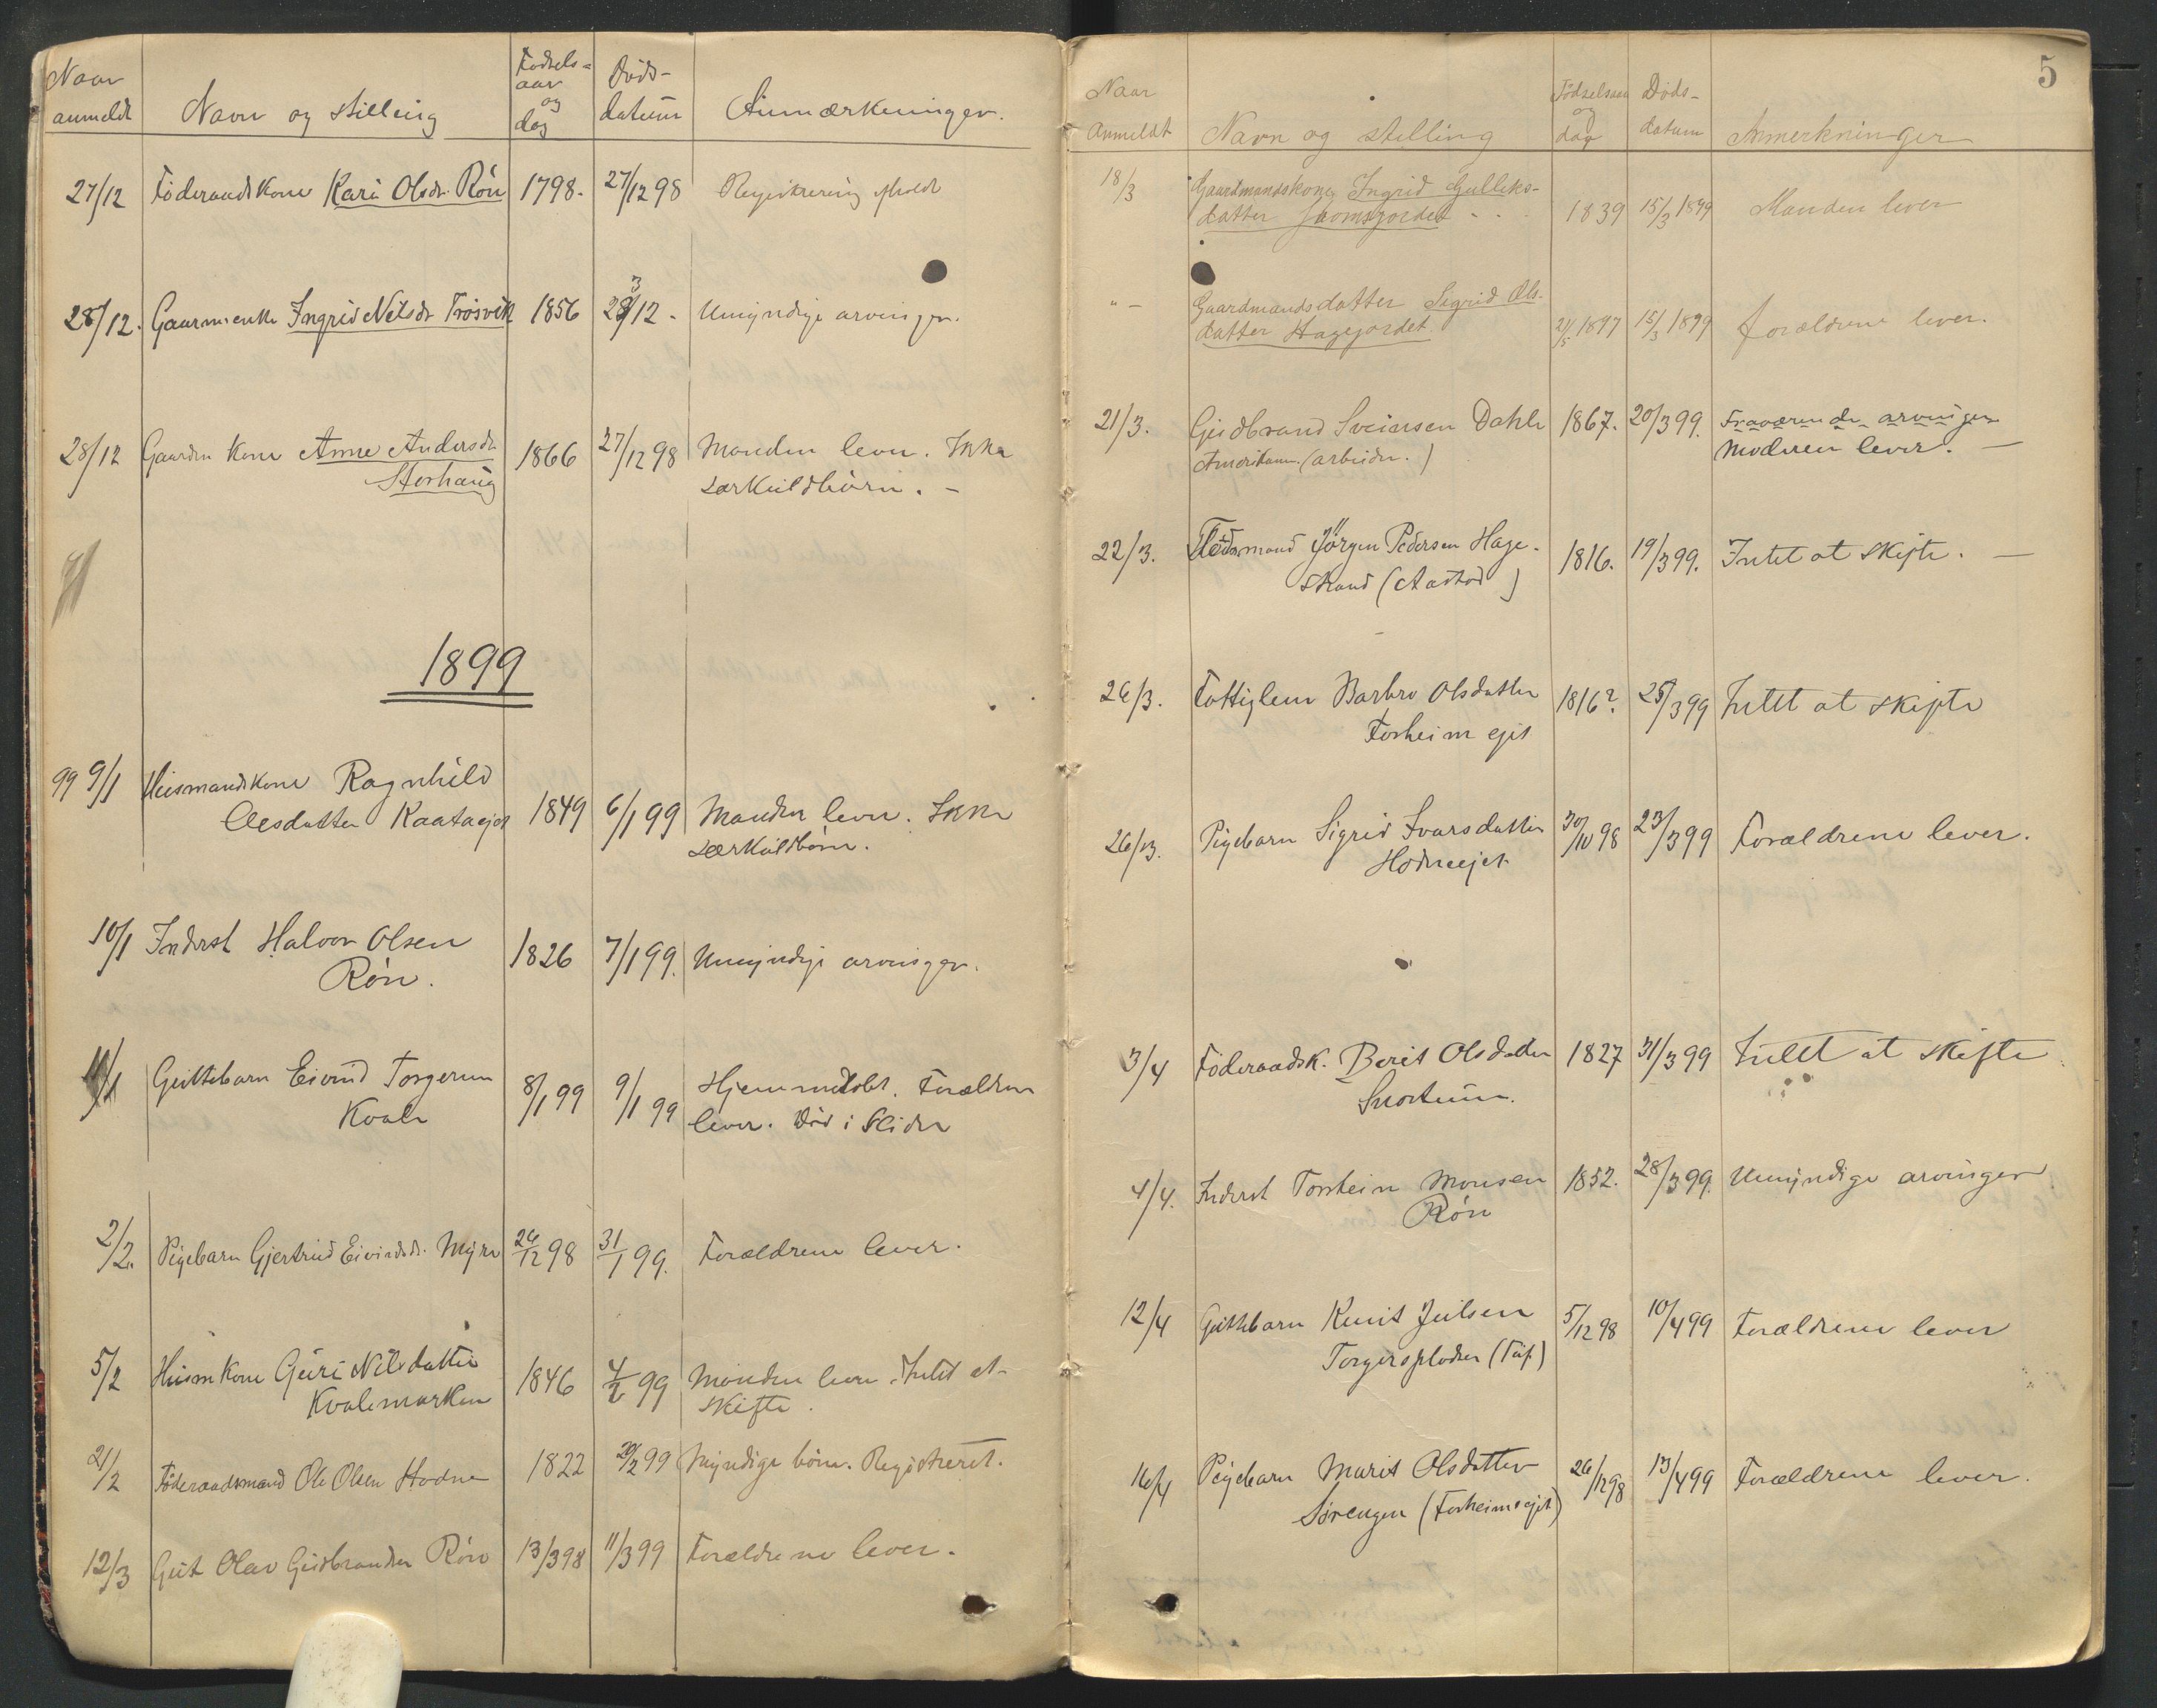 Naar anmeldt Navn og stilling Fødsels= aar og dag Døds- datum Anmærkninger.
27/12 Föderaadskone Kari Olsdr. Rön 1798. 27/12 98 Registrering afholdt
28/12. Gaardmenke Ingrid Nilsdr Trösvik 1856 23/12 - Umyndige arvinger.
28/12 Gaardm kone Anne Andersdr 1866 27/12 98 Manden lever. Ikke
Storhaug særkuldbörn. -
1899
99 9/1 Huusmandskone Ragnhild
Olesdatter Kaataejet 1849 6/1 99 Manden lever. Ikke
særkuldbörn.
10/1 Inderst Halvor Olsen 1826 7/1 99. Umyndige arvinger.
Rön.
11/1 Guttebarn Eivind Torgersen 8/1 99 9/1 99 Hjemmedöbt. Forældrene
Kvale lever. Död i Slidre
2/2. Pigebarn Gjertrud Eivindsdr. Myre 26/12 98 31/1 99. Forældrene lever.
5/2 Huusm kone Guri Nilsdatter 1846 4/2 99 Manden lever. Intet at
Kvalemarken skifte.
21/2 Föderaadsmand Ole Olsen Hodne 1822 20/2 99 Myndige börn. Registreret.
12/3 Gut Olav Gudbrandsen Rön 13/3 98 11/3 99 Forældrene lever.
5
Naar Anmeldt Navn og stilling Födselsaar og dag Döds- datum Anmerkninger
18/3 Gaardmandskone Ingrid Gulliks-
datter 1839 15/3 1899 Manden lever
" - Gaardmandsdatter Sigrid Ols-
datter Hagejordet 21/5 1897 15/3 1899 forældrene lever.
21/3. Gudbrand Sveinsen Dahle 1867. 20/3 99. Fraværende arvinger
Amerikaner (arbeider.) Moderen lever. -
22/3. Jörgen Pedersen Hage- 1816. 19/3 99. Intet at skifte. -
strand
26/3. Fattiglem Barbro Olsdatter 1816? 25/3 99 Intet at skifte
Forheim ejet
26/3. Pigebarn Sigrid Ivarsdatter 30/10 98 23/3 99 Forældrene lever.
Hodneejet
3/4 Föderaadsk. Berit Olsdatter 1827 31/3 99 Intet at skifte
4/4. Inderst Torstein Monsen 1852. 28/3 99. Umyndige arvinger
Rön
12/4 Guttebarn Knut Juulsen 5/12 98 10/4 99 Forældrene lever
16/4 Pigebarn Marit Olsdatter 26/12 98 13/4 99 Forældrene lever.
Sörengen (Forheimsejet)